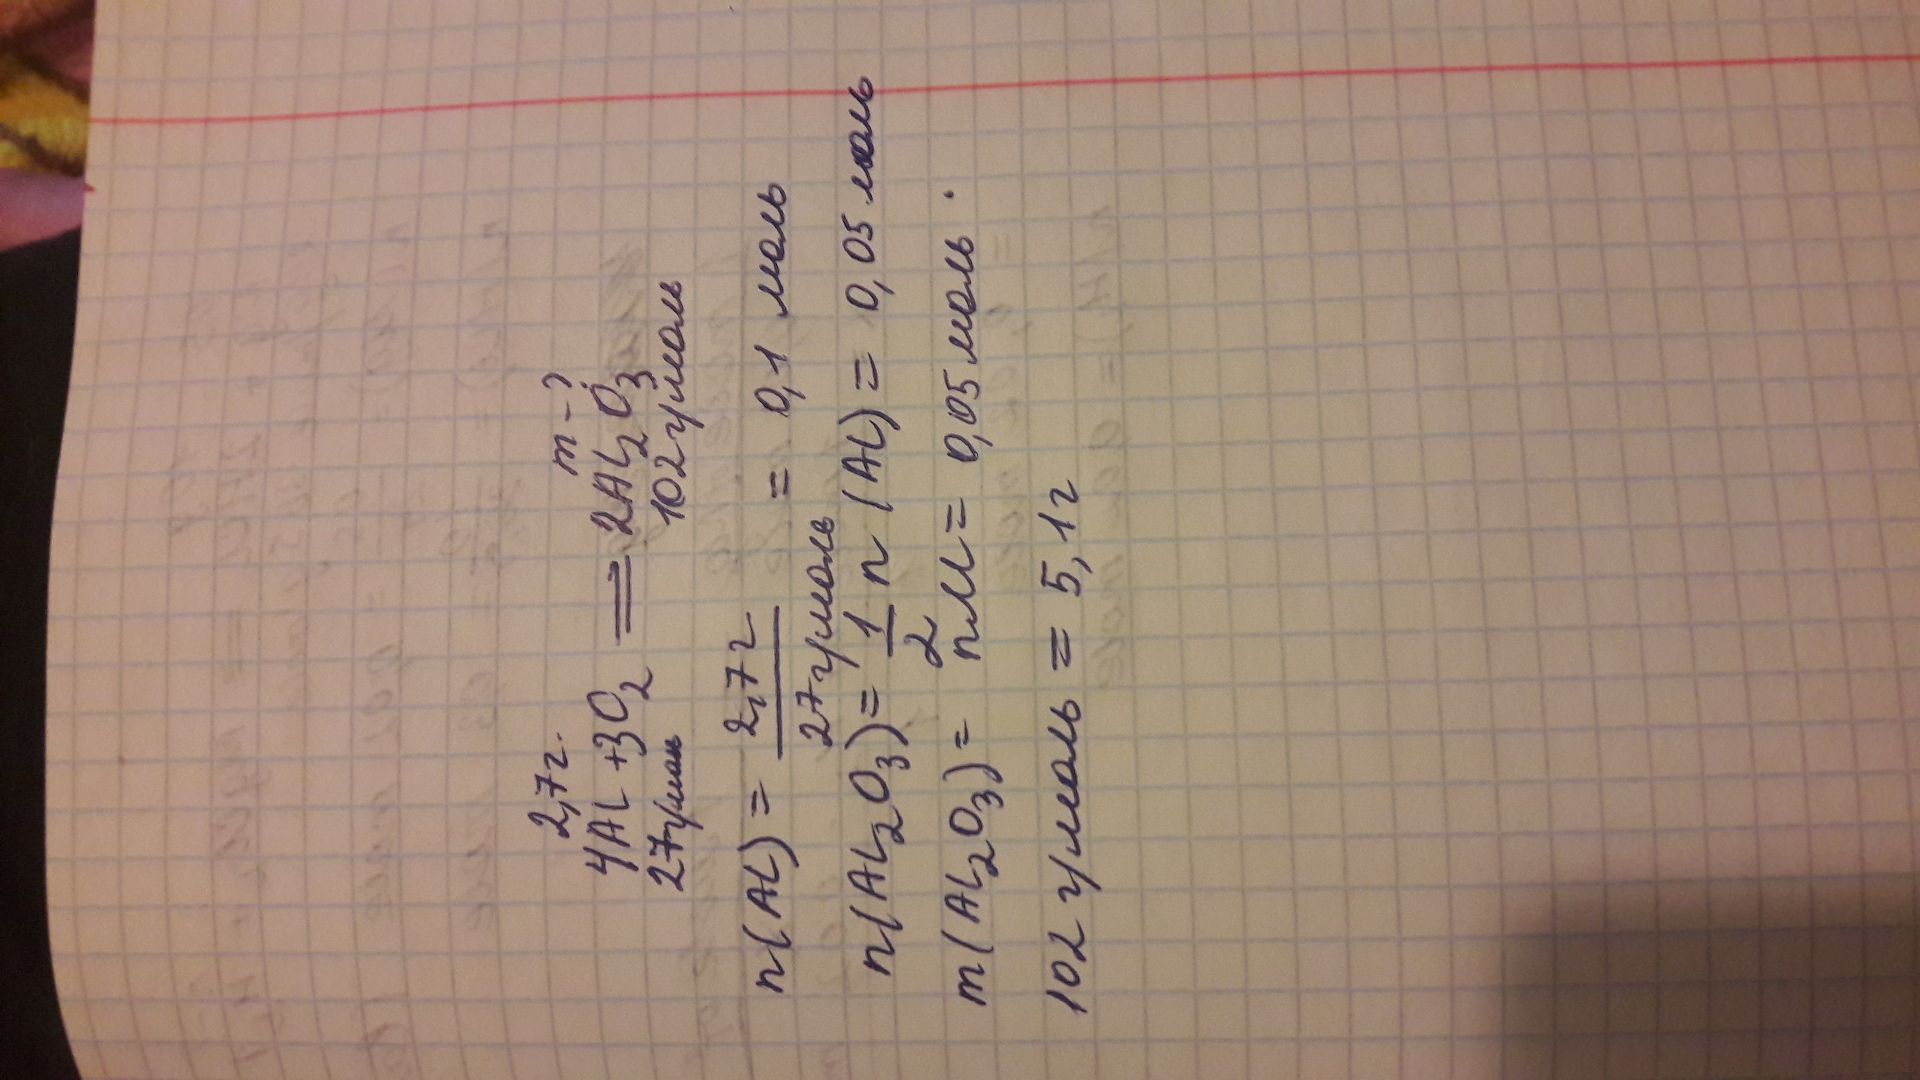 2,7г. m-?
4AL+3O₂ = 2AL₂O₃
27г/моль 102г/моль
n(AL) = 2,7г / 27г/моль = 0,1 моль
n(AL₂O₃)= 1/2 n (AL) = 0,05 моль
m(AL₂O₃)= nM= 0,05моль ·
102г/моль = 5,1г